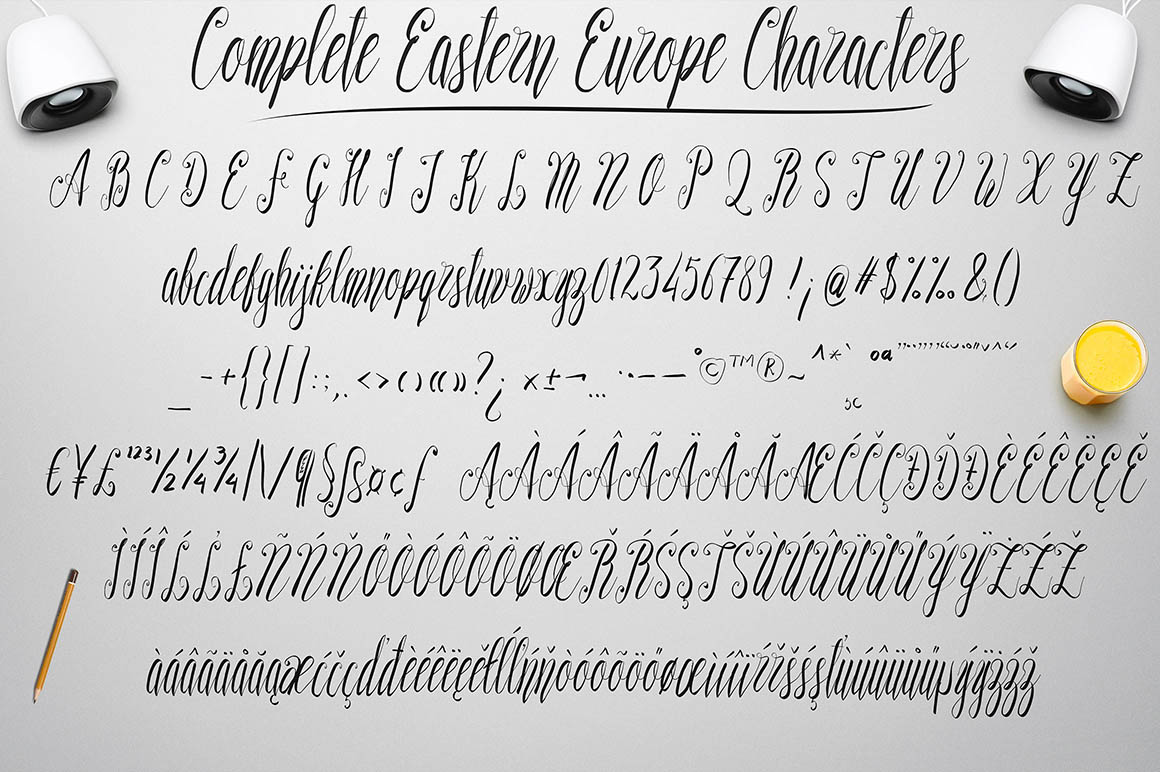 Complete Eastern Europe Characters
A B C D E F G H I J K L M N O P Q R S T U V W X Y Z
abcdefghijklmnopqrstuvwxyz0123456789 !¡@#$%‰&()
_ -+{}[]:;,. <>‹›«»?¿ x±¬... ©™®~ ^*` oa
€¥£ ¹²³¹ ½ ¼ ¾ |\/¶§ß¤¢ƒ ĄÀÁÂÃÄÅǍÆĆČÇĎĐÈÉÊËĘĚ
ÌÍÎĹĽŁÑŃŇŐÒÓÔÕÖØŒŘŔŚŞŤŠÙÚÛÜŮŰÝŸŻŹŽ
àáâãäåąæćčçďđèéêëęělńňòóôõöőøœùúûřŕšśştùúûüůűµýÿżźž